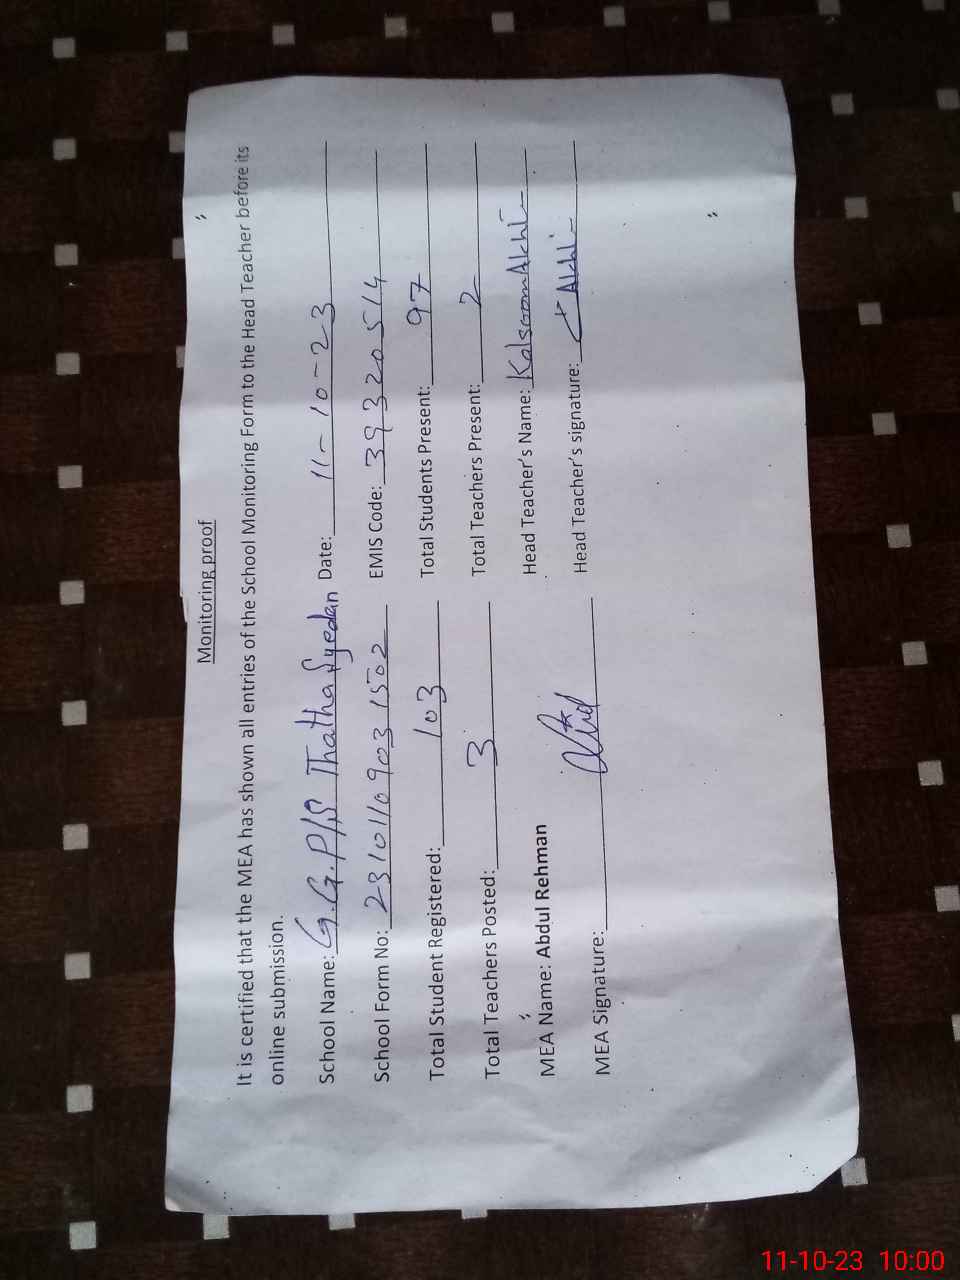 Monitoring proof
It is certified that the MEA has shown all entries of the School Monitoring Form to the Head Teacher before its
online submission.
School Name: G.G.P/S Thatha Syedan Date: 11-10-23
School Form No: 23101109031502 EMIS Code: 39320514
Total Student Registered: 103 Total Students Present: 97
Total Teachers Posted: 3 Total Teachers Present: 2
MEA Name: Abdul Rehman Head Teacher's Name: Kalsoom Akht
MEA Signature: Head Teacher's signature: Akht
11-10-23 10:00